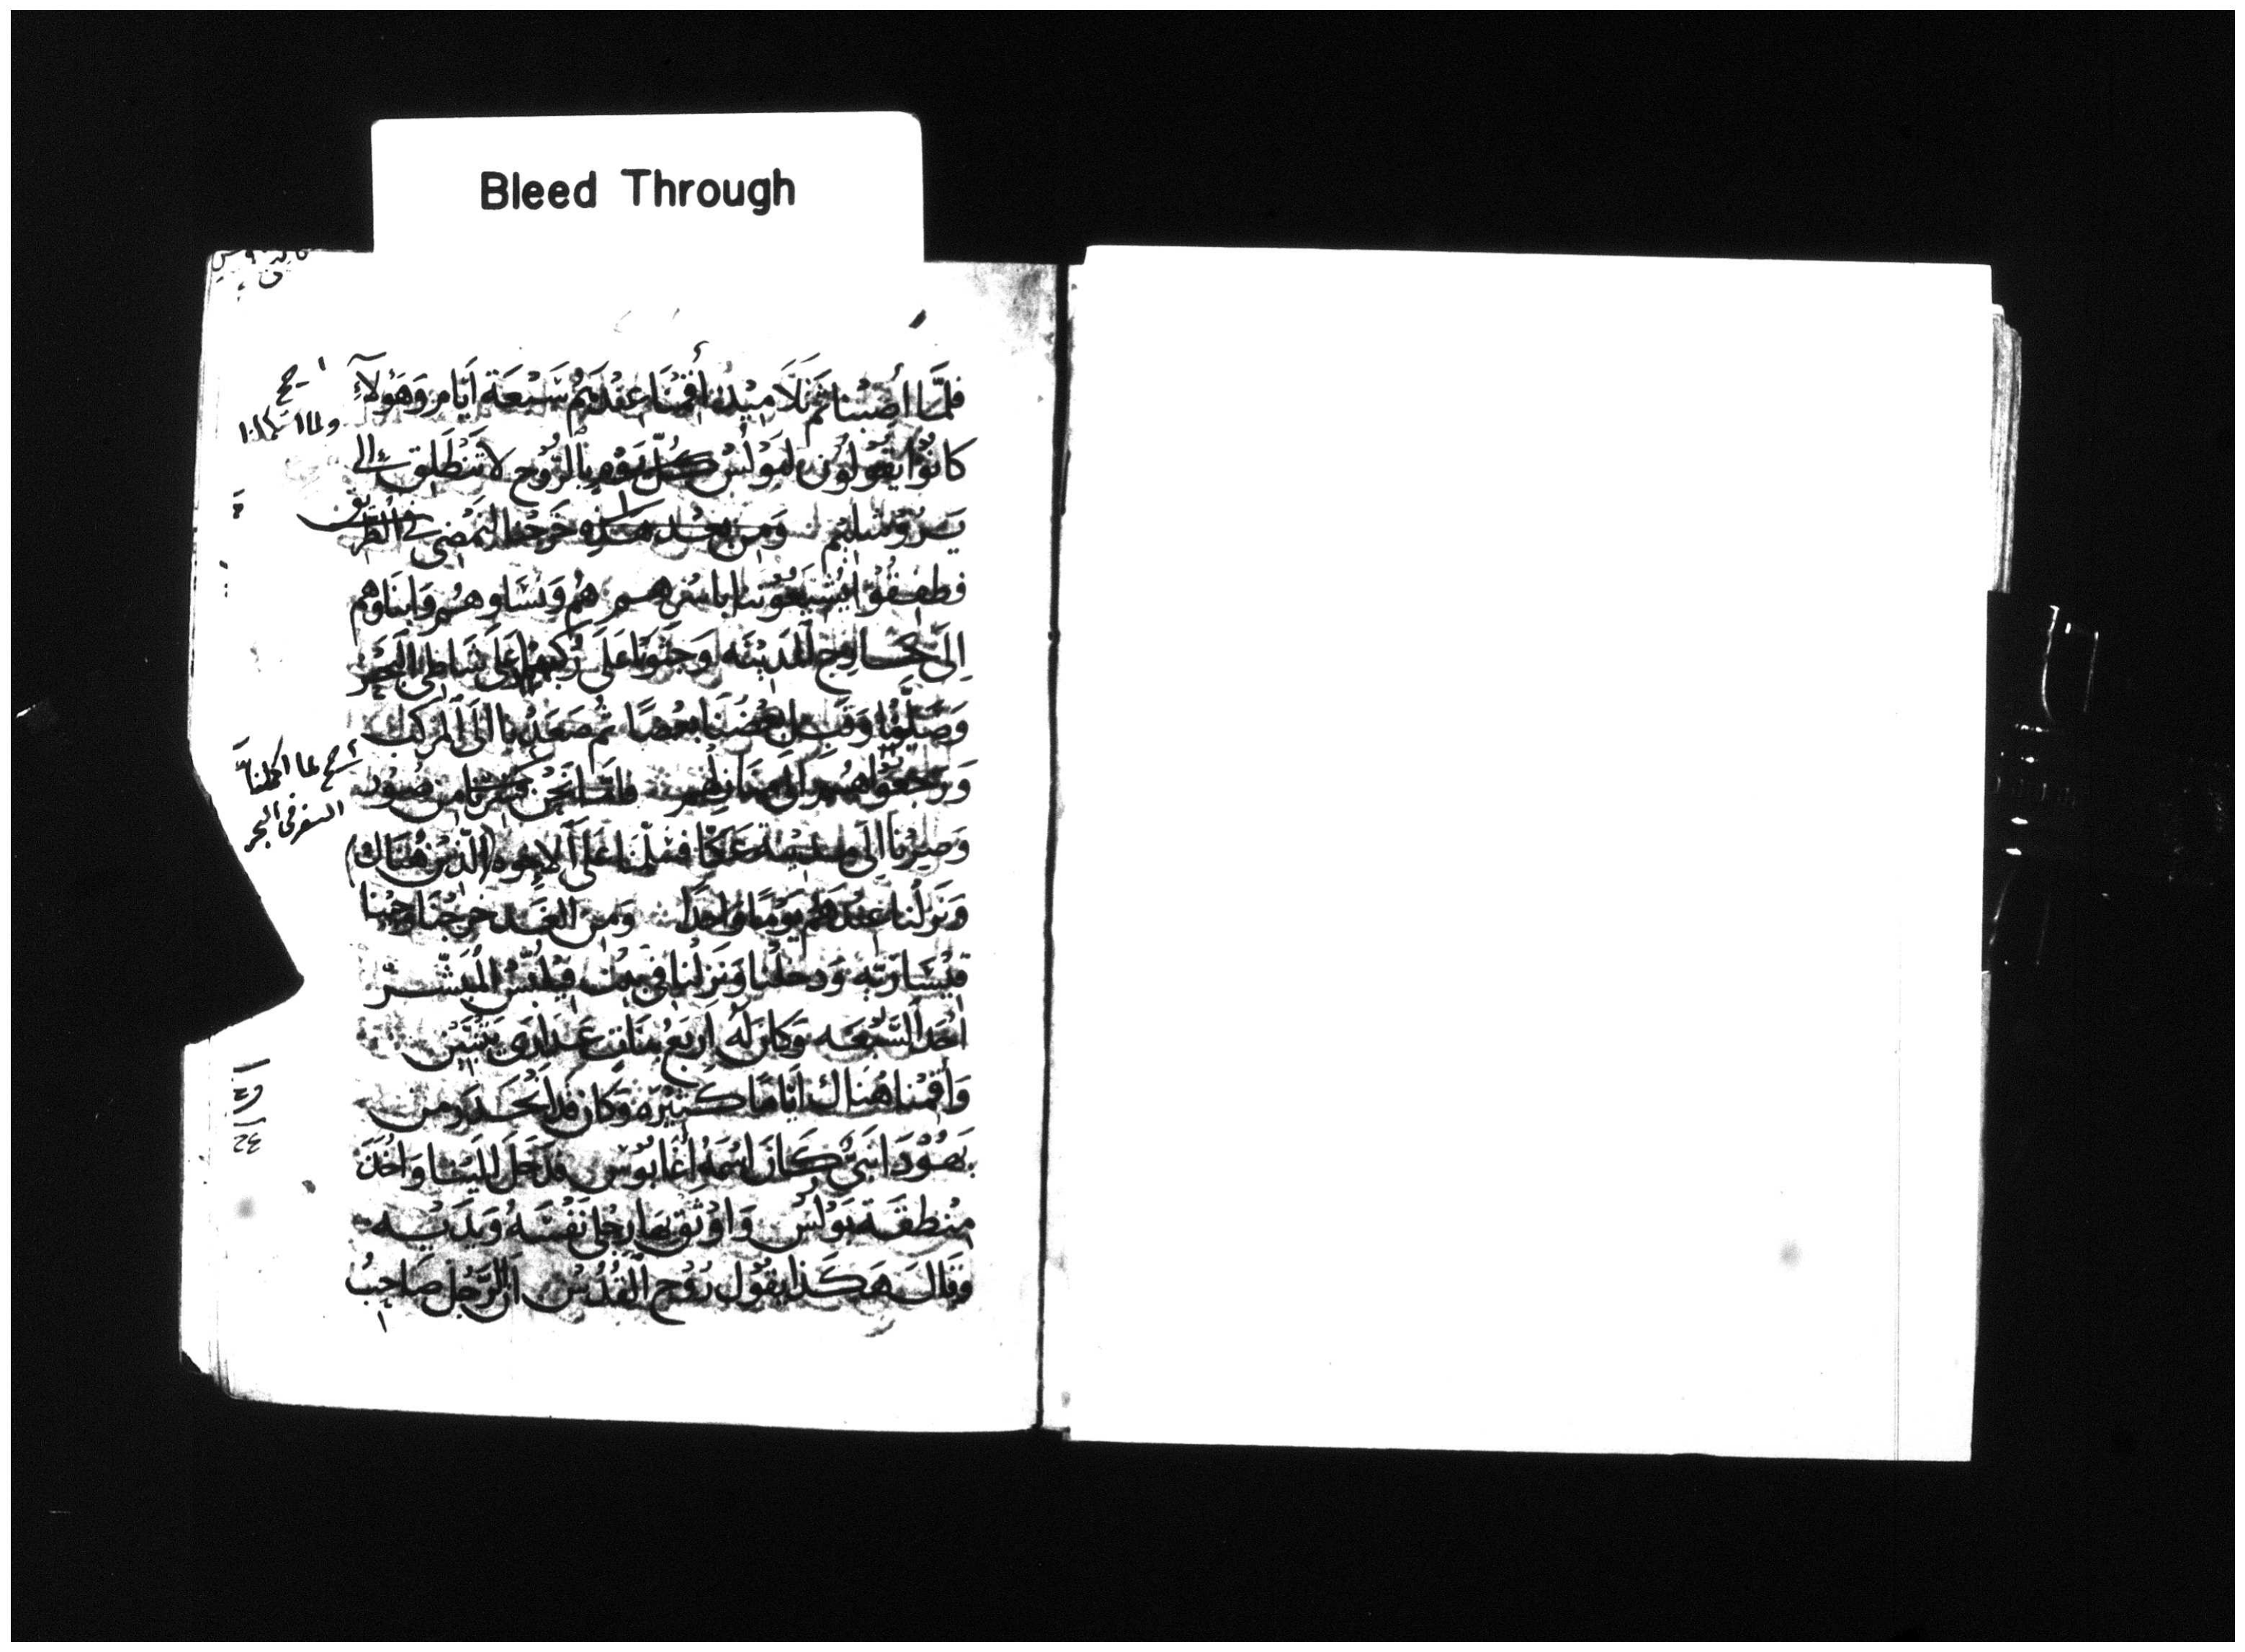 Bleed Through
فلَمَّا أُصِبْنا ثَمَّ تَلَامِيْذ أَقَمْنَا عِنْدَهُمْ سَبْعَة اَيَّام وَهَؤلآءِ
كانوُا يَقوُلوُن لبَوْلُس كُلّ يَوْم بِالرُّوْح لا تَنْطَلِق الى
يَروُشليم وَمن بعد هذه خرجنا لنَمْضي في الطريق
فطفقُوْا يُشَيِّعُوننا باسرهم هُم ونسَاوهُم وَابنَاوهم
اِلَى خَارج المَدِيْنَه وَجَثَوْنا عَلَى رُكَبِنا عَلَى شَاطِي البَحْر
وَصَلَّيْنا وَقَبَّل بَعْضُنَا بَعْضًا ثم صَعَدْنا الَى المركب
وَرَجَعوُا هُم الَى منازلهم فامّا نَحْن فسرنا من صور
وَصِرْنَا اِلَى مدينة عَكّا فسَلّمنا عَلَى الاخوه (الَّذِيْنَ هُنَاك)
وَنَزلْنا عِنْدَهم يَوْمًا وَاحداً وَمن الغَد خرجْنَا وَجِيْنا
قيْسَارِيَّه وَدخلْنا وَنَزلْنا في بيت فيلبُّس المُبَشّر
اَحَد السَّبْعَه وَكان لَه اَربَع بنَات عَذارَى يَتَنَبَّيْن
وَأَقَمْنا هُنَاك ايّامًا كثيْرَه وَكان قد انْحَدَر من
يَهوُدَا نَبيّ كَانَ اسْمهُ أَغَابُوْس فدَخَلَ اليْنا وَاخَذ
مِنْطَقَة بَوْلُس وَاوْثَق بها رجْلَي نَفْسَهُ وَيَدَيْه
وَقَالَ هَكَذا يَقُوْل رُوْح القُدُس ان الرَّجُل صَاحِبُ
ولما استكملنا
لما اكملنا
السفر في البحر